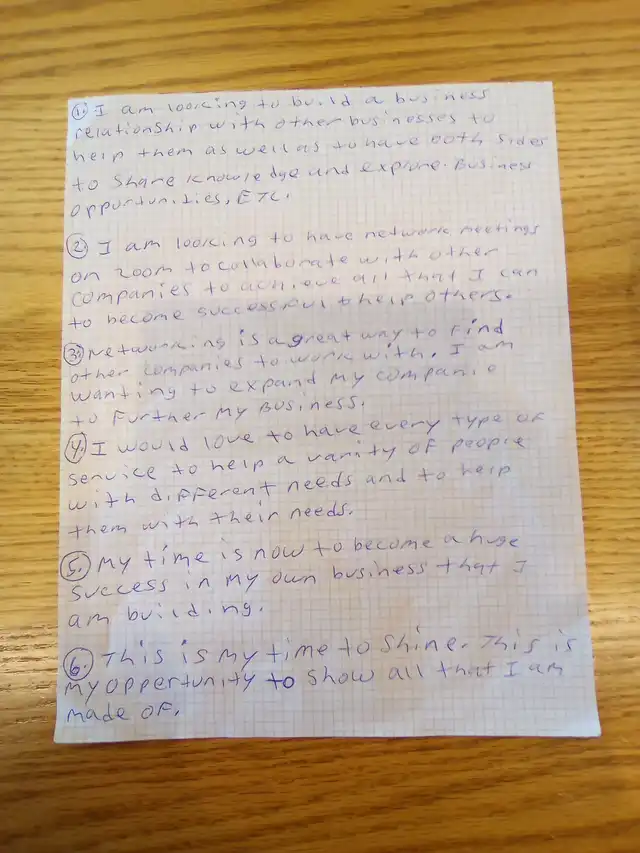 1. I am looking to build a business
relationship with other businesses to
help them as well as to have both sides
to share knowledge and explore. Business
opportunities, ETC.
2. I am looking to have network meetings
on zoom to collaborate with other
companies to achieve all that I can
to become successful & help others.
3. Networking is a great way to find
other companies to work with. I am
wanting to expand my companie
to further my Business.
4. I would love to have every type of
service to help a varity of people
with different needs and to help
them with their needs.
5. My time is now to become a huge
success in my own business that I
am building.
6. This is my time to shine. This is
my oppertunity to show all that I am
made of.